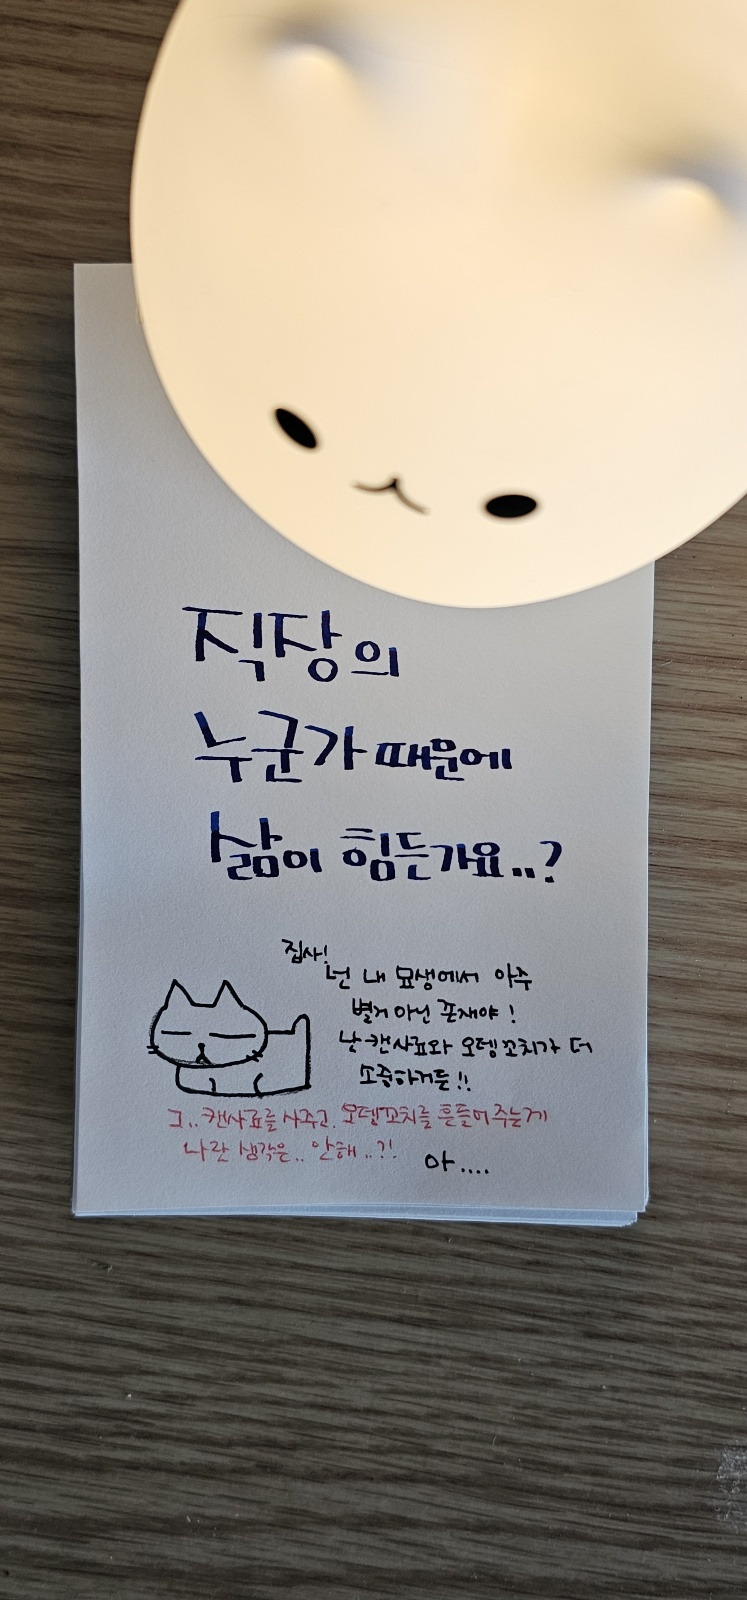 직장의
누군가 때문에
삶이 힘든가요..?
집사!
넌 내 묘생에서 아주
별거 아닌 존재야!
난 캔사료와 오뎅꼬치가 더
소중하거든!!
그.. 캔사료를 사주고. 오뎅꼬치를 흔들어주는게
나란 생각은.. 안해..?!
아....